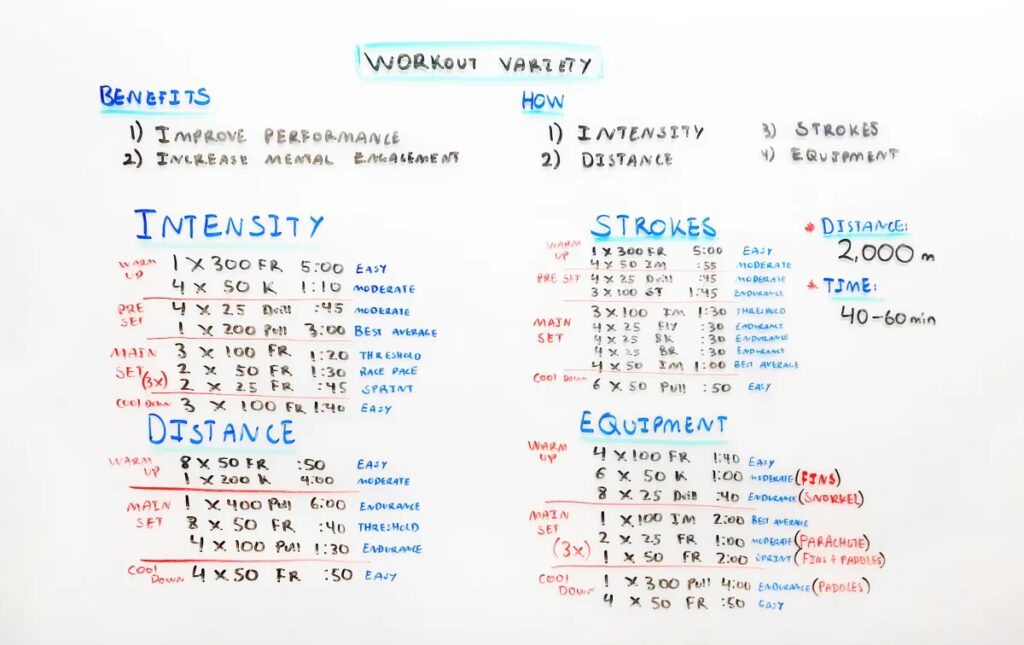 WORKOUT VARIETY
BENEFITS
1) IMPROVE PERFORMANCE
2) INCREASE MENTAL ENGAGEMENT
HOW
1) INTENSITY
2) DISTANCE
3) STROKES
4) EQUIPMENT
INTENSITY
WARM UP 1 X 300 FR 5:00 EASY
4 X 50 K 1:10 MODERATE
PRE SET 4 X 25 Drill :45 MODERATE
1 X 200 Pull 3:00 BEST AVERAGE
MAIN SET (3x) 3 X 100 FR 1:20 THRESHOLD
2 X 50 FR 1:30 RACE PACE
2 X 25 FR :45 SPRINT
COOL DOWN 3 X 100 FR 1:40 EASY
DISTANCE
WARM UP 8 X 50 FR :50 EASY
1 X 200 K 4:00 MODERATE
MAIN SET 1 X 400 Pull 6:00 ENDURANCE
8 X 50 FR :40 THRESHOLD
4 X 100 Pull 1:30 ENDURANCE
COOL DOWN 4 X 50 FR :50 EASY
STROKES
WARM UP 1 X 300 FR 5:00 EASY
4 X 50 IM :55 MODERATE
PRE SET 4 X 25 Drill :45 MODERATE
3 X 100 ST 1:45 ENDURANCE
MAIN SET 3 X 100 IM 1:30 THRESHOLD
4 X 25 FLY :30 ENDURANCE
4 X 25 BK :30 ENDURANCE
4 X 25 BR :30 ENDURANCE
4 X 50 IM 1:00 BEST AVERAGE
COOL DOWN 6 X 50 Pull :50 EASY
* DISTANCE:
2,000 m
* TIME:
40-60 min
EQUIPMENT
WARM UP 4 X 100 FR 1:40 EASY
6 X 50 K 1:00 MODERATE (FINS)
8 X 25 Drill :40 ENDURANCE (SNORKEL)
MAIN SET (3x) 1 X 100 IM 2:00 BEST AVERAGE
2 X 25 FR 1:00 MODERATE (PARACHUTE)
1 X 50 FR 2:00 SPRINT (FINS + PADDLES)
COOL DOWN 1 X 300 Pull 4:00 ENDURANCE (PADDLES)
4 X 50 FR :50 EASY